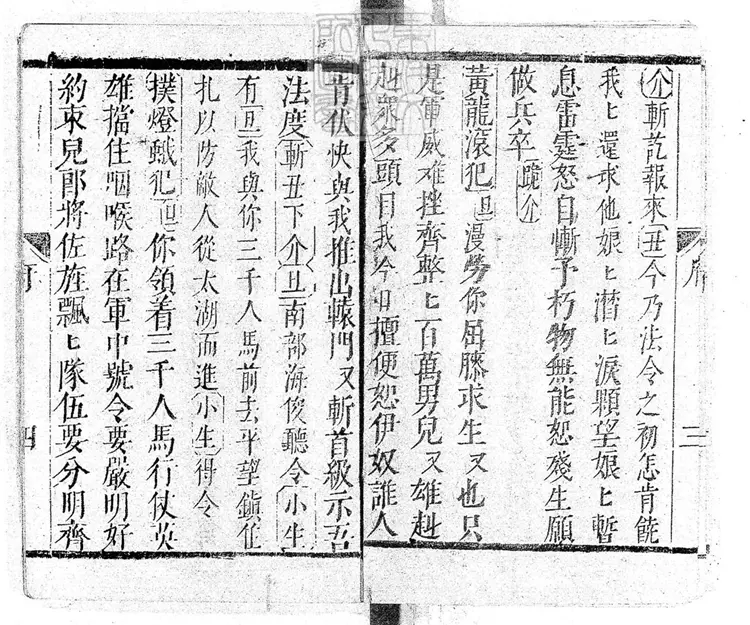 介斬訖報來丑今乃法令之初怎肯饒
我〻還求他娘〻潛〻淚顆望娘〻暫
息雷霆怒自慚予朽物無能恕殘生願
做兵卒跪介
黃龍滾犯旦漫勞你屈膝求生又也只
是軍威难挫齊整〻百萬男兒又雄赳
赳眾多頭目我今日擅便恕伊奴誰人
肯伏快與我推出轅門又斬首級示吾
法度斬丑下介丑南部海俊聽令小生
有旦我與你三千人馬前去平望鎮住
扎以防敵人從太湖而進小生得令
撲燈蛾犯旦你領着三千人馬行仗英
雄擋住咽喉路在軍中號令要嚴明好
約束兒郎將佐旌飄〻隊伍要分明齊
三
四